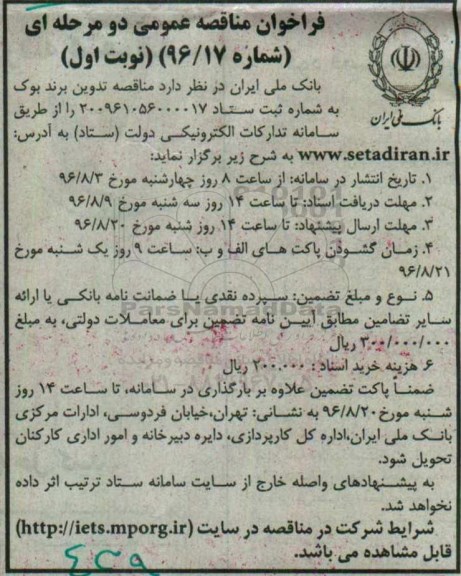 فراخوان مناقصه عمومی دو مرحله ای
(شماره ۹۶/۱۷) (نوبت اول)
بانک ملی ایران
بانک ملی ایران در نظر دارد مناقصه تدوین برند بوک
به شماره ثبت ستاد ۲۰۰۹۶۱۰۵۶۰۰۰۰۱۷ را از طریق
سامانه تدارکات الکترونیکی دولت (ستاد) به آدرس:
www.setadiran.ir به شرح زیر برگزار نماید:
۱. تاریخ انتشار در سامانه: از ساعت ۸ روز چهارشنبه مورخ ۹۶/۸/۳
۲. مهلت دریافت اسناد: تا ساعت ۱۴ روز سه شنبه مورخ ۹۶/۸/۹
۳. مهلت ارسال پیشنهاد: تا ساعت ۱۴ روز شنبه مورخ ۹۶/۸/۲۰
۴. زمان گشودن پاکت های الف و ب: ساعت ۹ روز یک شنبه مورخ
۹۶/۸/۲۱
۵. نوع و مبلغ تضمین: سپرده نقدی یا ضمانت نامه بانکی یا ارائه
سایر تضامین مطابق آیین نامه تضمین برای معاملات دولتی، به مبلغ
۳۰۰/۰۰۰/۰۰۰ ریال
۶ هزینه خرید اسناد : ۲۰۰.۰۰۰ ریال
ضمناً پاکت تضمین علاوه بر بارگذاری در سامانه، تا ساعت ۱۴ روز
شنبه مورخ ۹۶/۸/۲۰ به نشانی: تهران،خیابان فردوسی، ادارات مرکزی
بانک ملی ایران،اداره کل کارپردازی، دایره دبیرخانه و امور اداری کارکنان
تحویل شود.
به پیشنهادهای واصله خارج از سایت سامانه ستاد ترتیب اثر داده
نخواهد شد.
شرایط شرکت در مناقصه در سایت (http://iets.mporg.ir)
قابل مشاهده می باشد.
۴۳۹